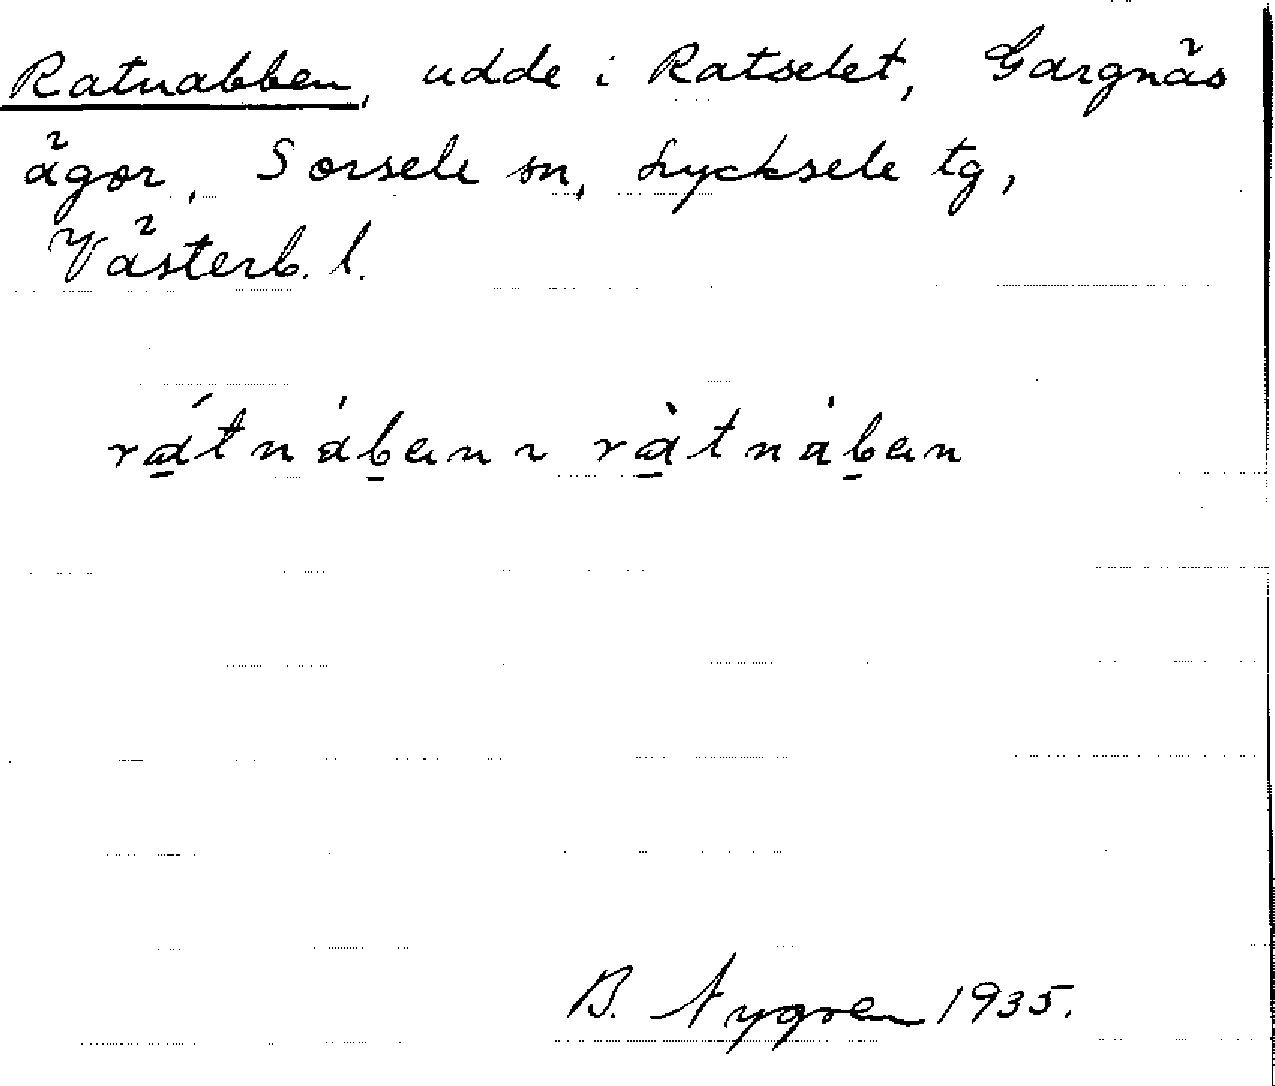 Ratnabben, udde i Ratselet, Gargnäs
ägor, Sorsele sn, Lycksele tg,
Västerb. l.
rát̀náben ~ ràt̀náben
B. Nygren 1935.